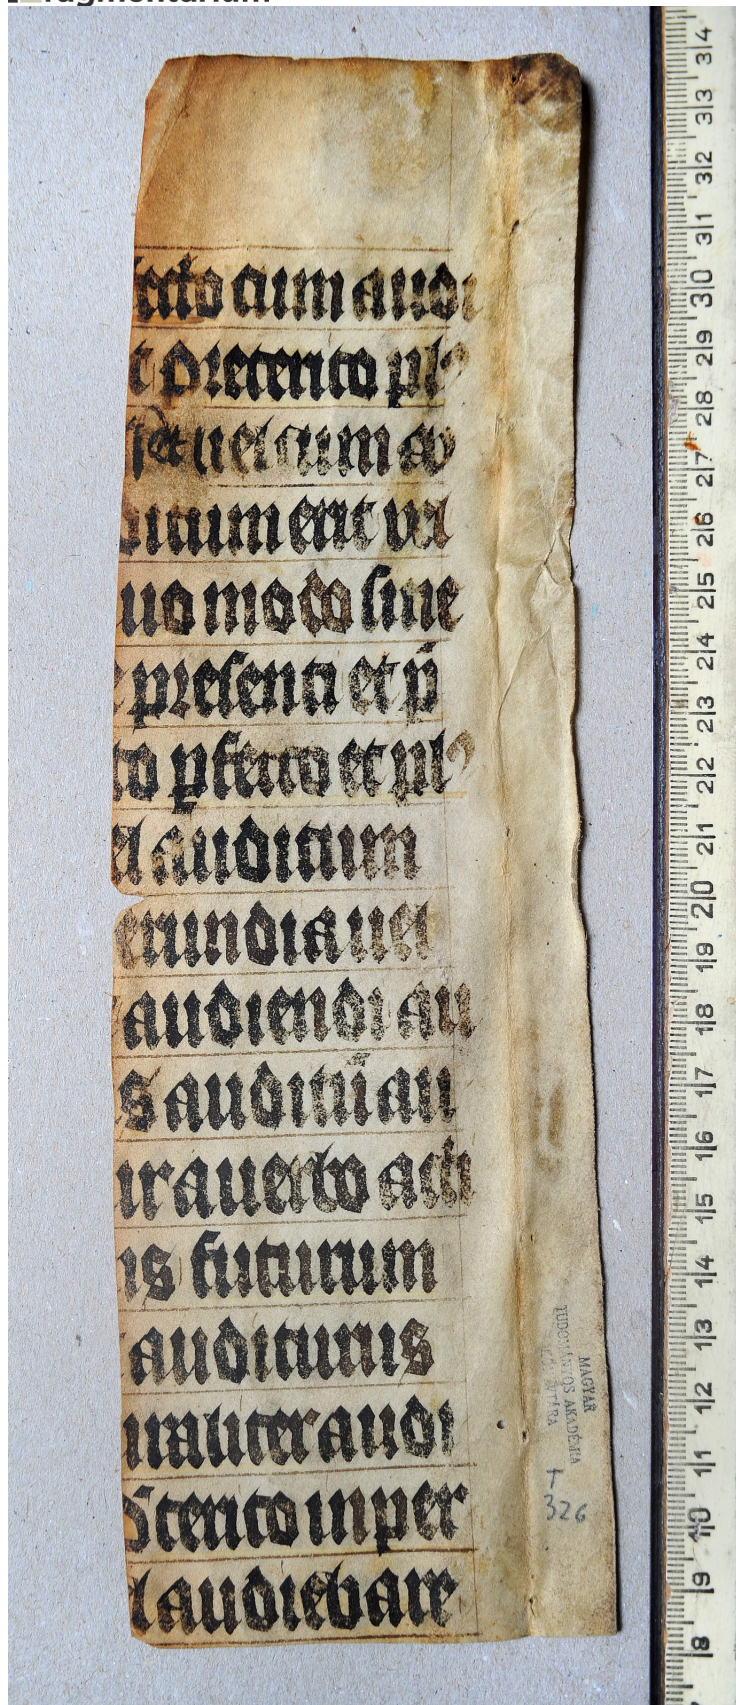 fecto cum audi
t preterito pl
et uel cum au
ditum erit vel
uo modo sine
presenti et p̄
to ꝑfecto et pl
el auditum
erundia uel
audiendi au
s auditū au
ur a uerbo acti
is futurum
auditurus
uraliter audi
terito inper
l audiebare
MAGYAR
TUDOMÁNYOS AKADÉMIA
KÖNYVTÁRA
326
34
33
32
31
30
29
28
27
26
25
24
23
22
21
20
19
18
17
16
15
14
13
12
11
10
9
8